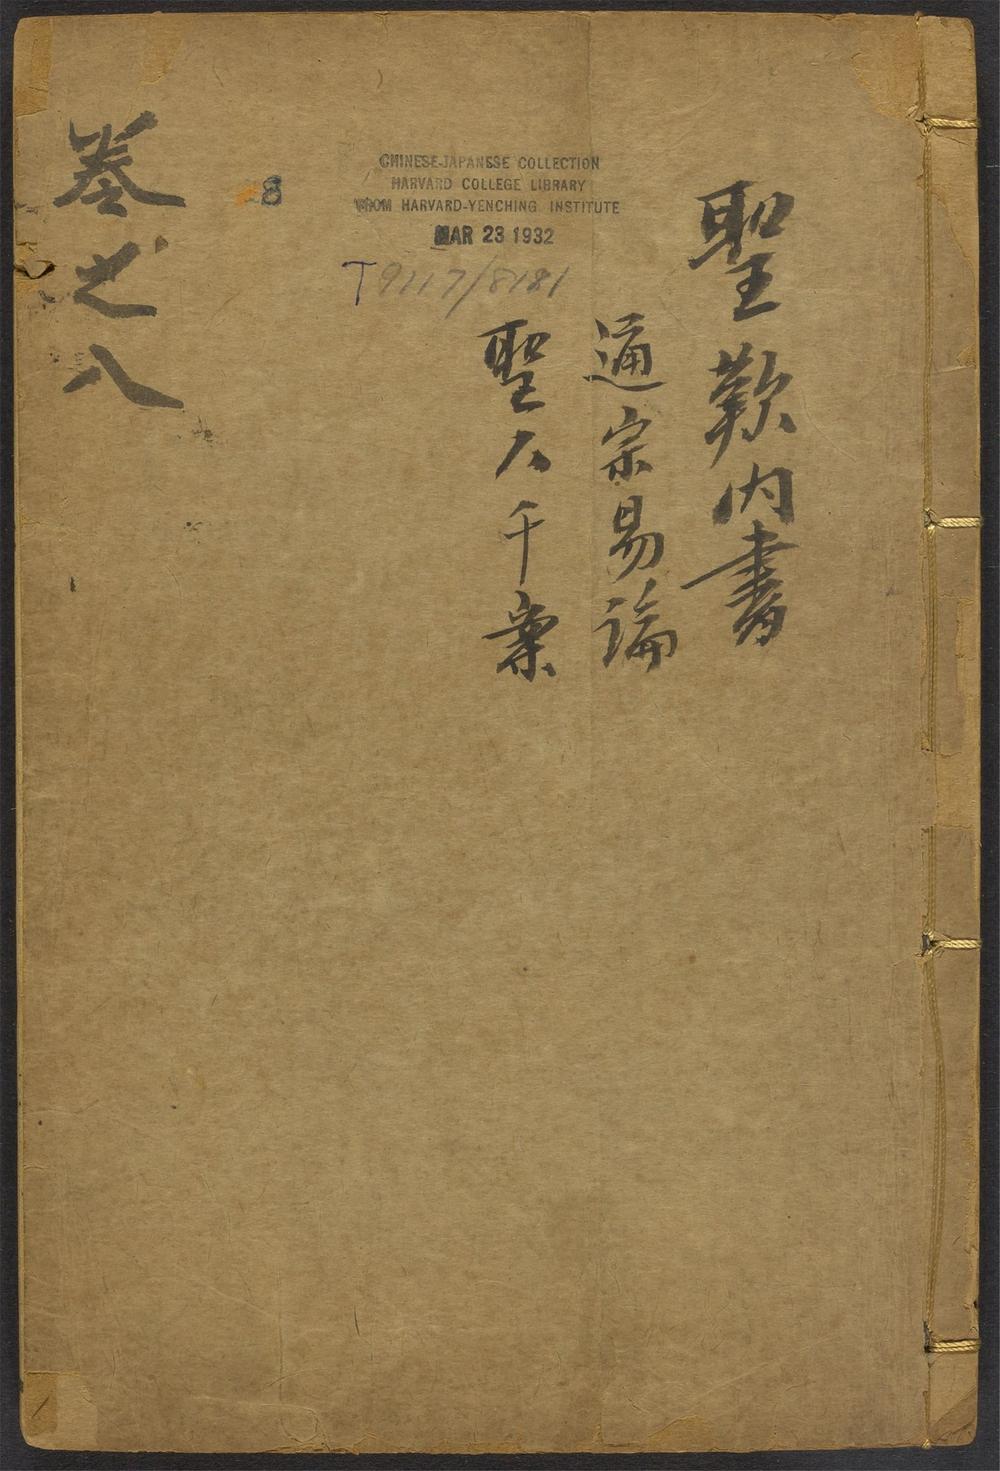 聖歎内書
通宗易論
聖人千案
卷之八
8
CHINESE-JAPANESE COLLECTION
HARVARD COLLEGE LIBRARY
FROM HARVARD-YENCHING INSTITUTE
MAR 23 1932
T9117/8181